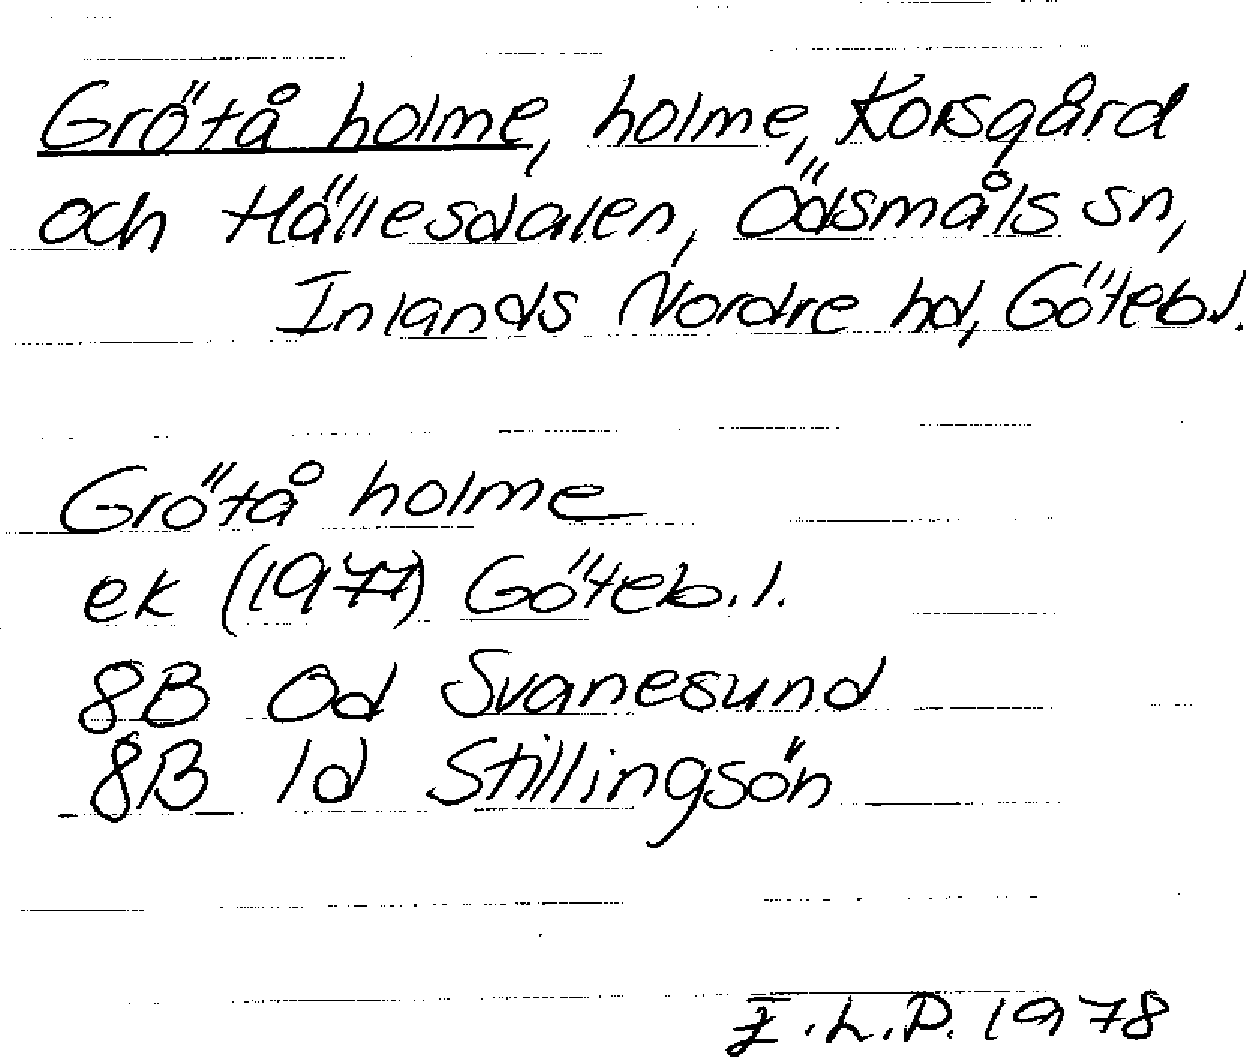 Grötå holme, holme, Korsgård
och Hällesdalen, Ödsmåls sn,
Inlands Nordre hd, Göteb.l.
Grötå holme
ek (1977) Göteb.l.
8B 0d Svanesund
8B 1d Stillingsön
E.L.P. 1978